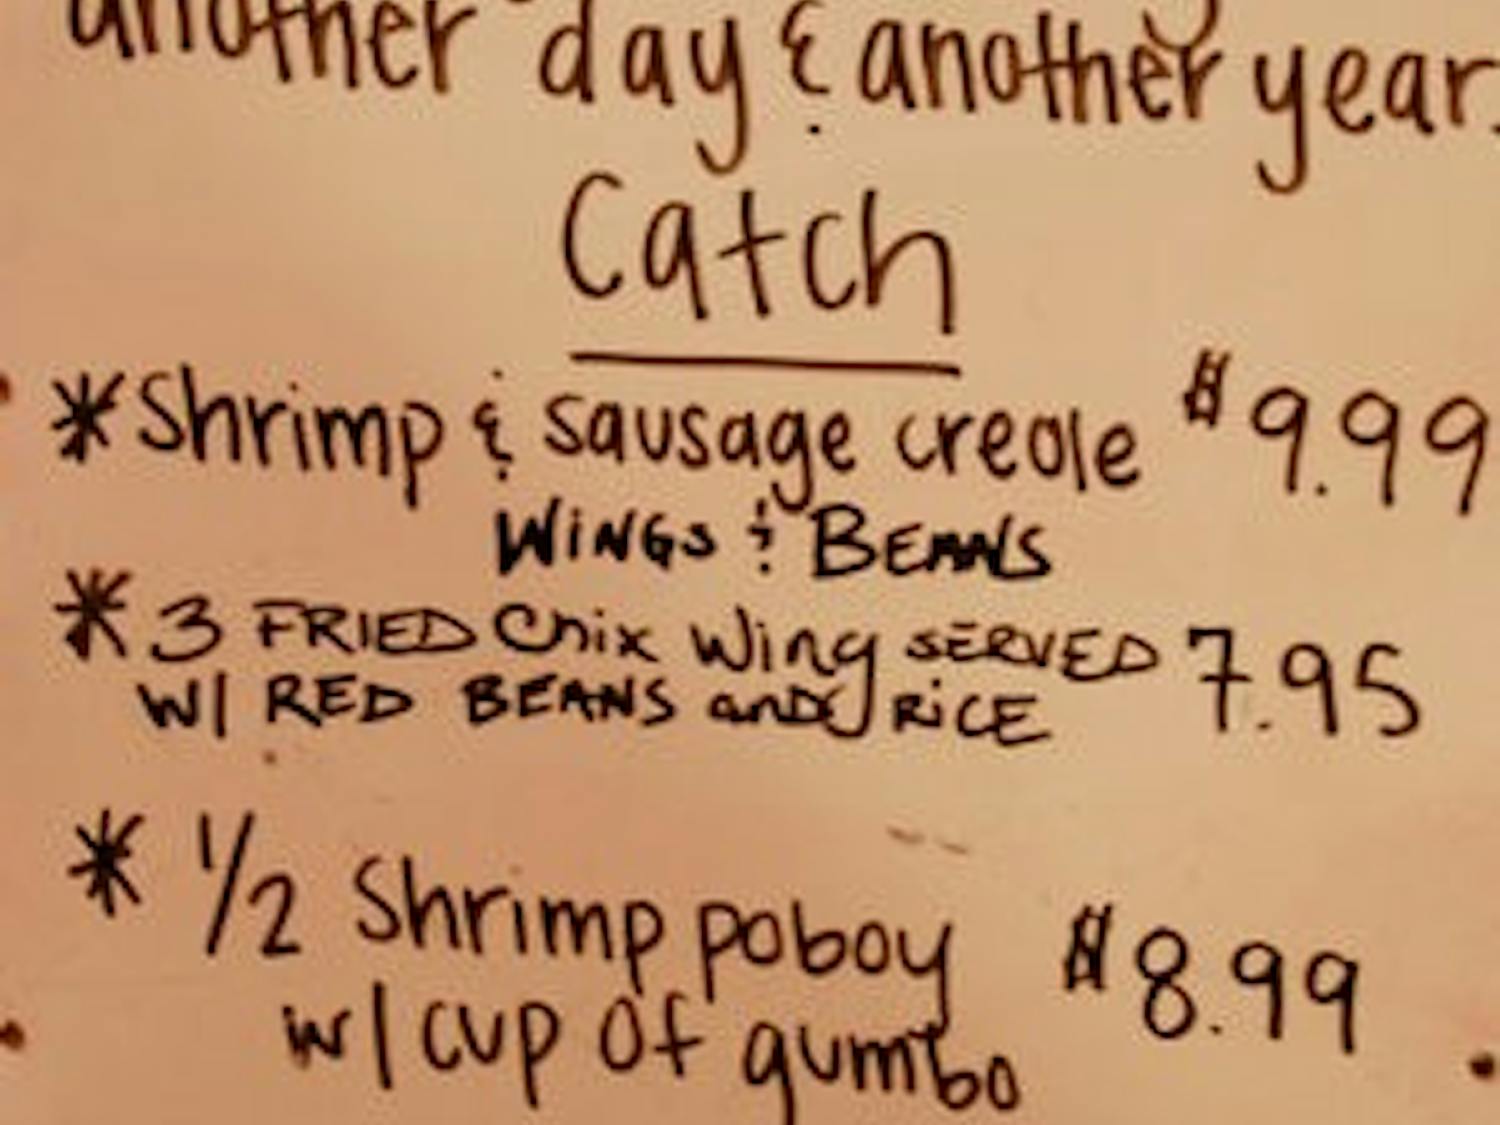 another day & another year.
Catch
* Shrimp & sausage creole $9.99
WiNGS & BEANS
* 3 FRIED Chix Wing SERVED 7.95
W/ RED BEANS and RiCE
* 1/2 Shrimp poboy $8.99
w/ cup of gumbo